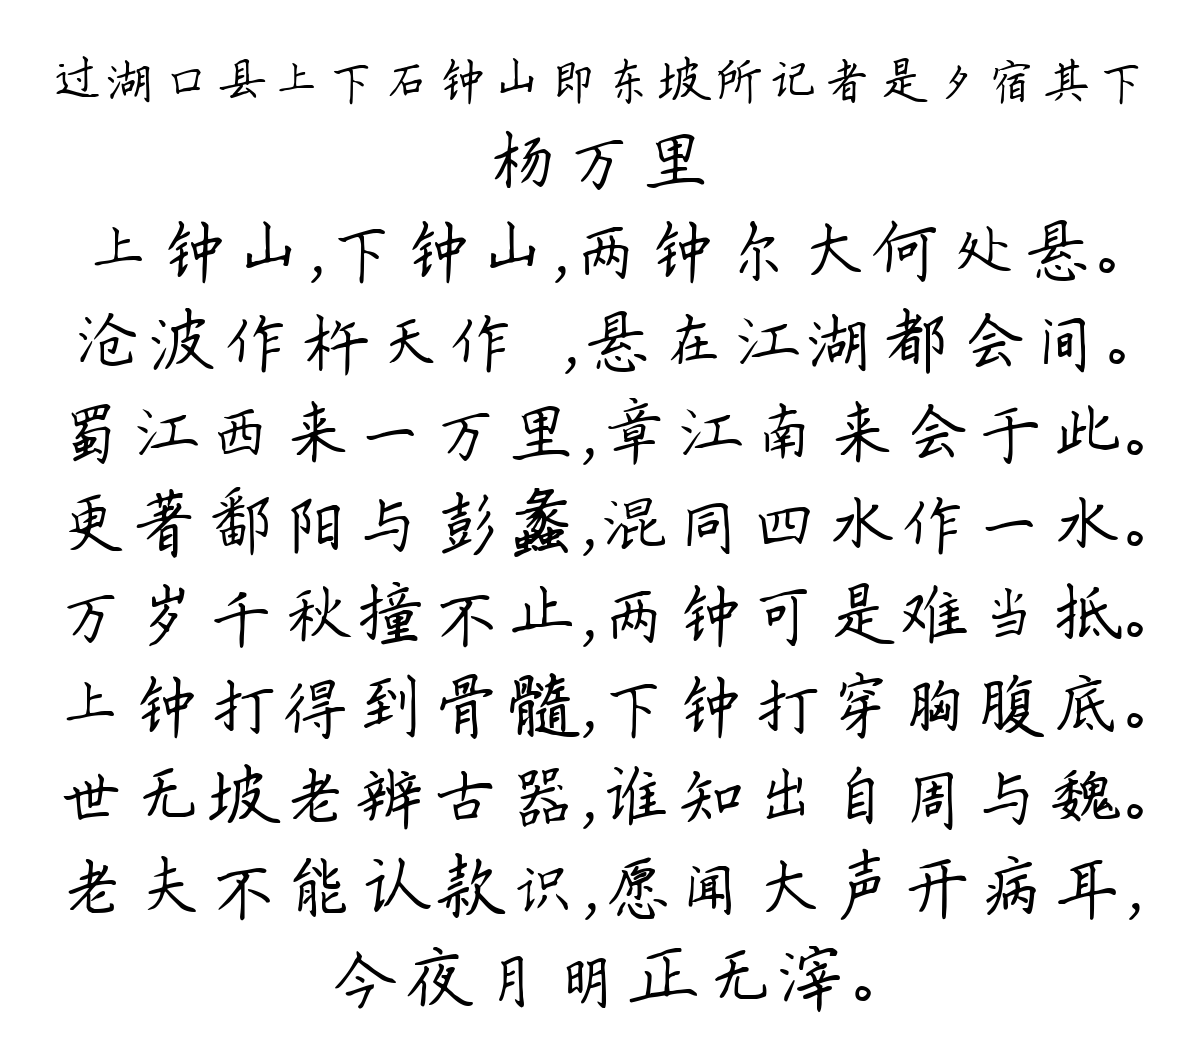 过湖口县上下石钟山即东坡所记者是夕宿其下
杨万里
上钟山,下钟山,两钟尔大何处悬。
沧波作杵天作 ,悬在江湖都会间。
蜀江西来一万里,章江南来会于此。
更著鄱阳与彭蠡,混同四水作一水。
万岁千秋撞不止,两钟可是难当抵。
上钟打得到骨髓,下钟打穿胸腹底。
世无坡老辨古器,谁知出自周与魏。
老夫不能认款识,愿闻大声开病耳,
今夜月明正无滓。